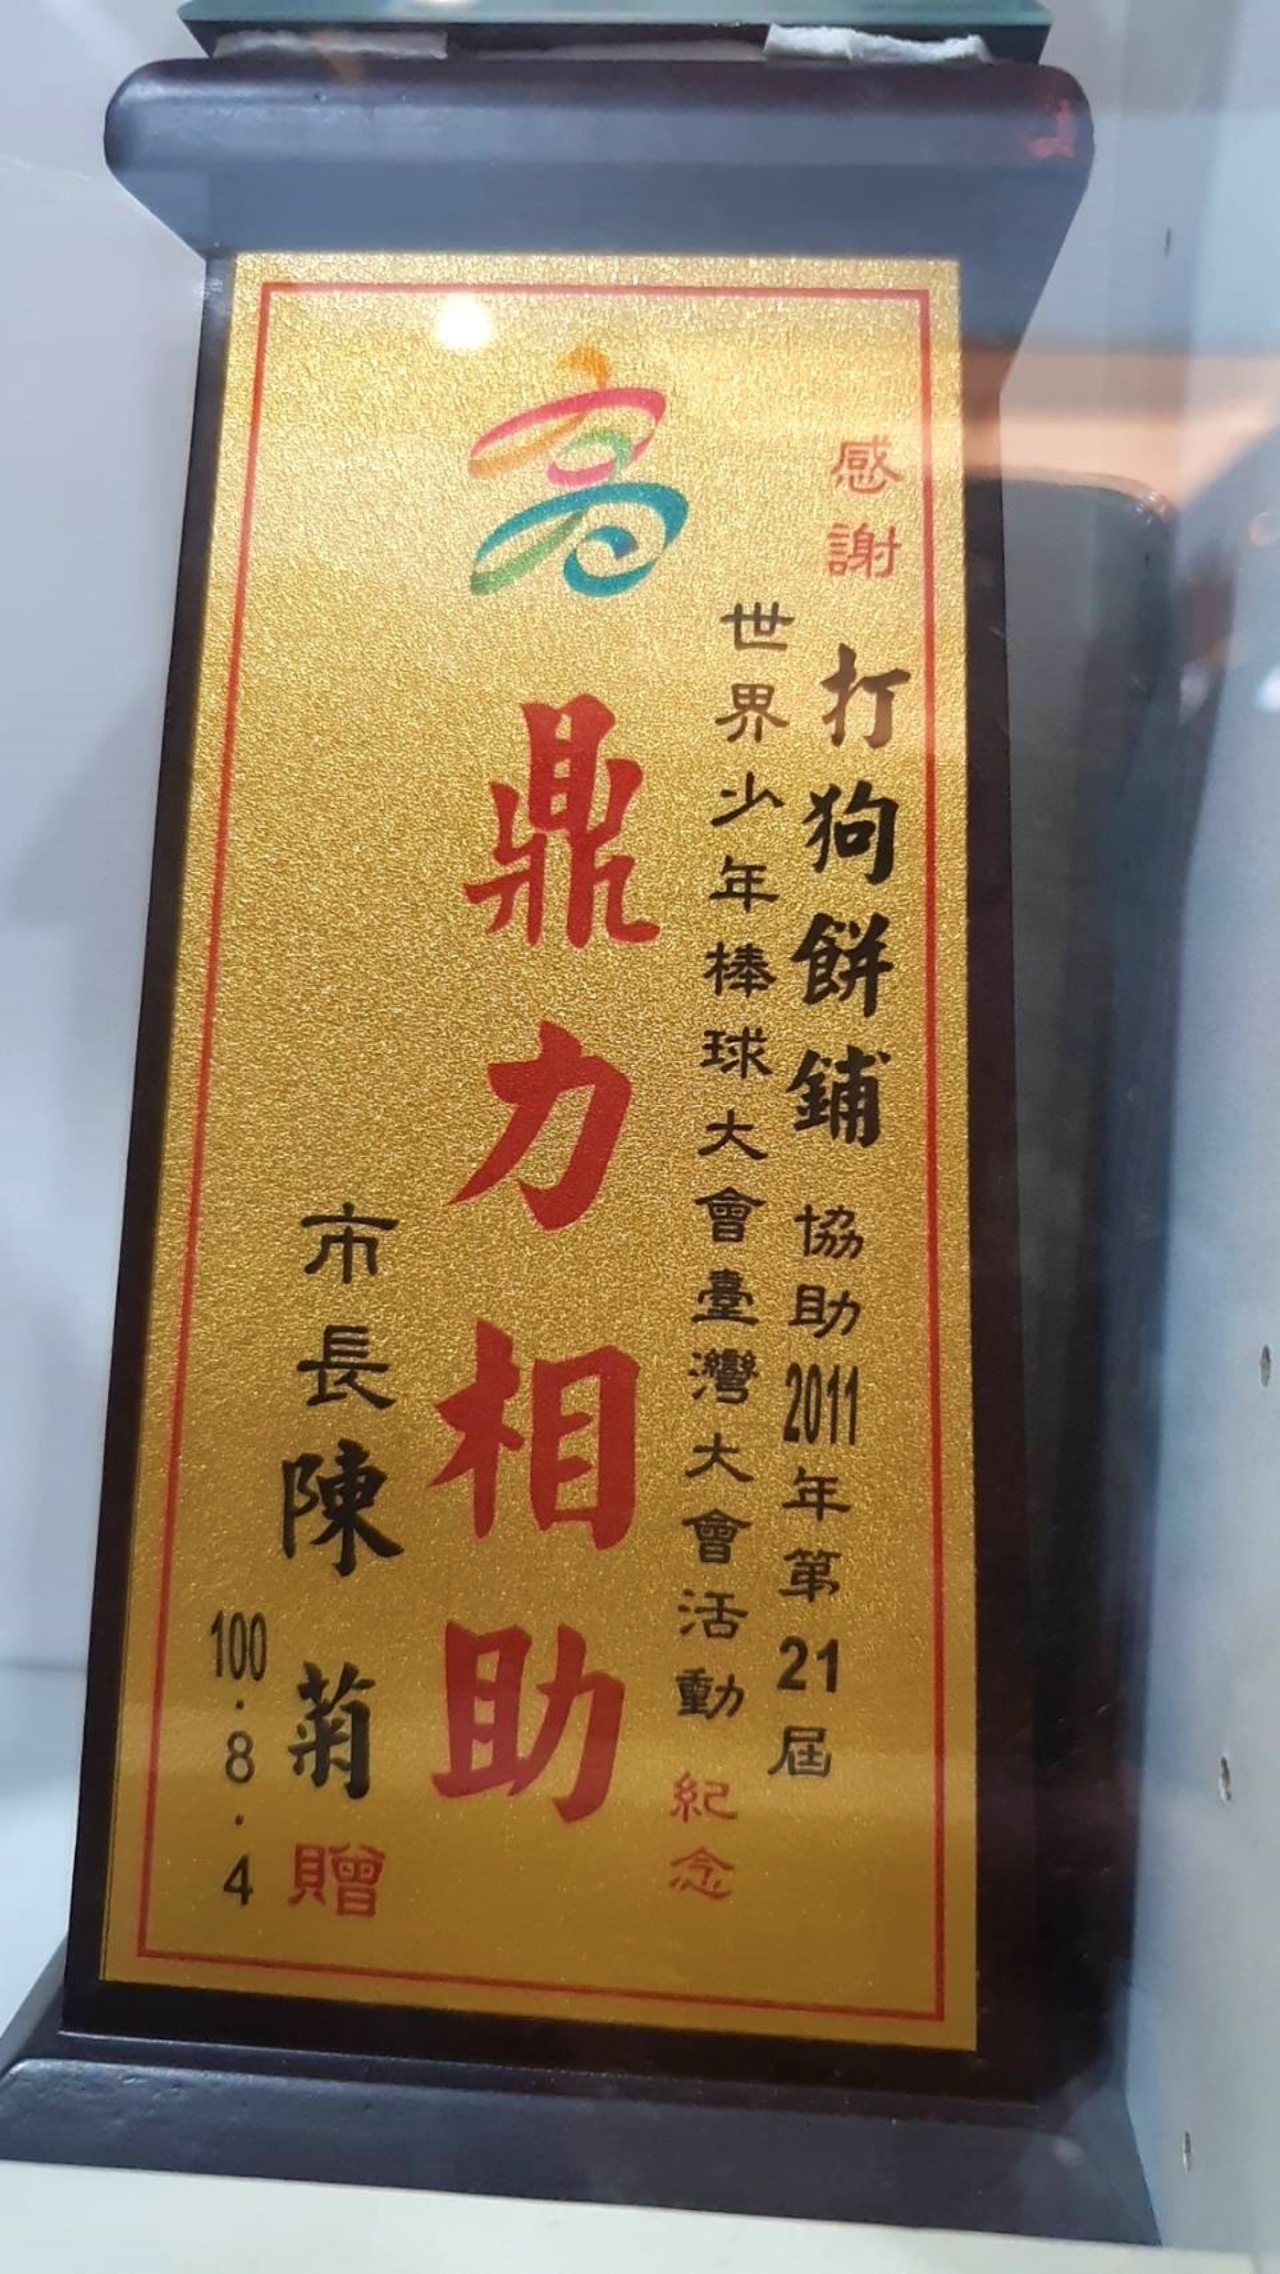 感謝 打狗餅鋪 協助2011年第21屆
世界少年棒球大會臺灣大會活動 紀念
高
鼎力相助
市長陳菊贈
100.8.4